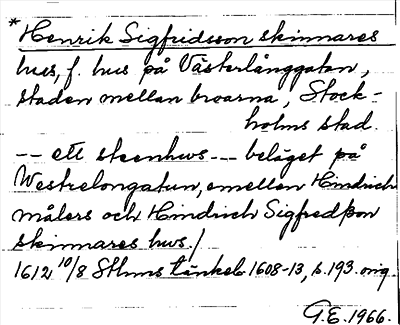 * Henrik Sigfridsson skinnares
hus, f. hus på Västerlånggatan,
staden mellan broarna, Stock-
holms stad.
-- ett steenhws -- beläget på
Westrelongatun, emellen Hindrich
målers och Hindrich Sigfredßon
skinnares hws./
1612 10/8 Sthms tänkeb. 1608-13, s. 193. orig.
G.E. 1966.